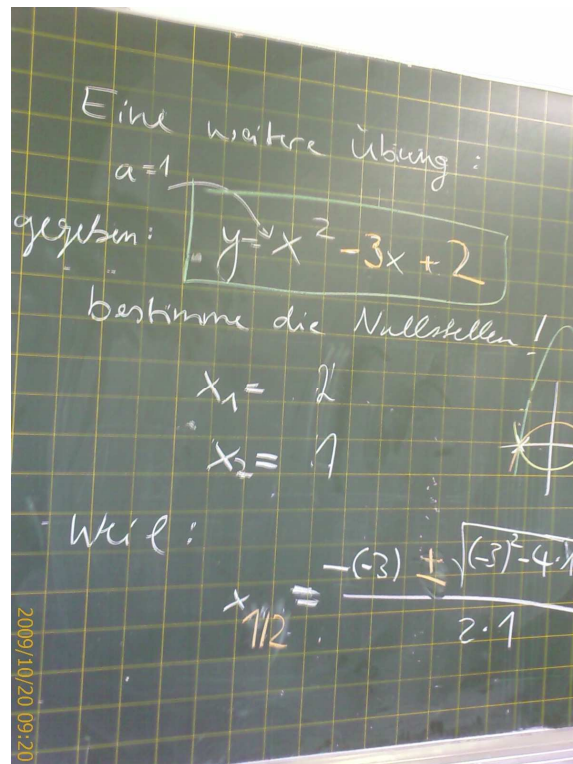 Eine weitere Übung:
a=1
gegeben: y=x²-3x+2
bestimme die Nullstellen!
x₁= 2
x₂= 1
Weil:
x₁/₂ = (-(-3) ± √((-3)²-4·1
2·1
2009/10/20 09:20